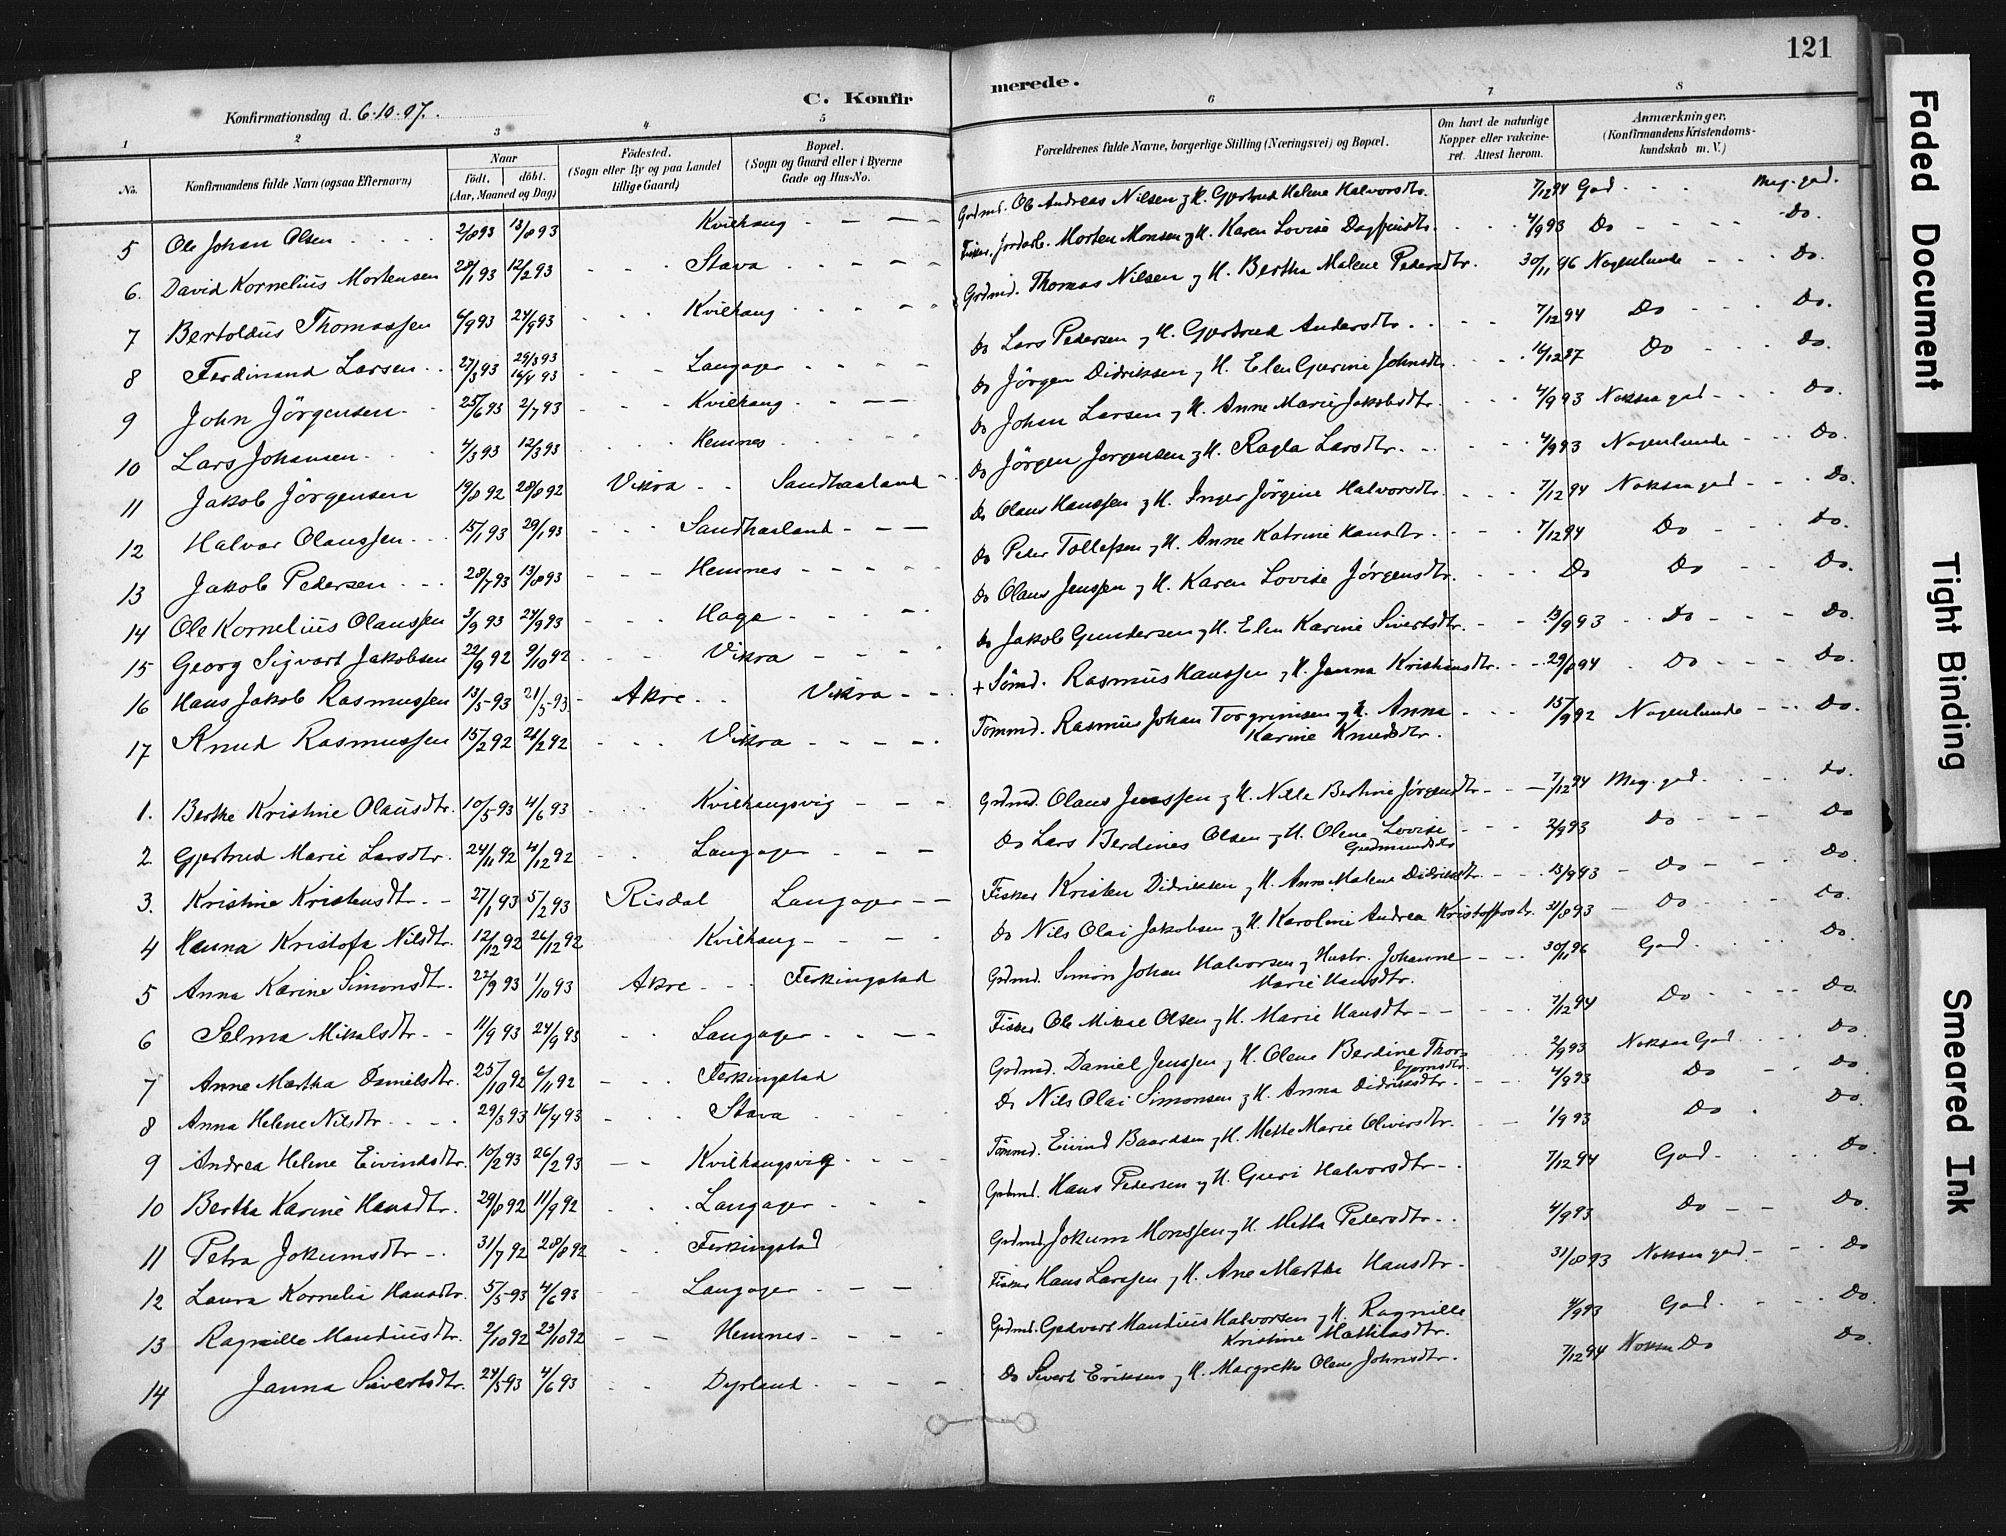 121
C. Konfirmerede.
Konfirmationsdag d. 6-10-07.
1 2 3 4 5 6 7 8
No. Konfirmandens fulde Navn (ogsaa Efternavn) Naar födt. döbt. (Aar, Maaned og Dag) Födested. (Sogn eller By og paa Landet tillige Gaard) Bopæl. (Sogn og Gaard eller i Byerne Gade og Hus-No. Forældrenes fulde Navne, borgerlige Stilling (Næringsvei) og Bopæl. Om havt de naturlige Kopper eller vakcineret. Attest herom. Anmærkninger. (Konfirmandens Kristendomskundskab m. V.)
5 Ole Johan Olsen 2/8 93 13/8 93 Kvilhaug Grdmd. Ole Andreas Nilsen og H. Gjertrud Helene Halvorsdtr. 7/12 94 God Meg. god.
6. David Kornelius Mortensen 28/1 93 12/2 93 Stava Fisker, Jordarb. Morten Monsen og H. Karen Lovise Dagfinsdtr. 4/9 93 Do Do.
7 Bertoldus Thomassen 6/9 93 24/9 93 Kvilhaug Grdmd. Thomas Nilsen og H. Bertha Malene Pedersdtr. 30/11 96 Nogenlunde Do.
8 Ferdinand Larsen 27/3 93 29/3 93 16/4 93 Langager Do Lars Pedersen og H. Gjertrud Andersdtr. 7/12 94 Do Do.
9 John Jörgensen 25/6 93 2/7 93 Kvilhaug Do Jörgen Didriksen og H. Elen Gurine Johnsdtr. 16/12 97 Do Do.
10 Lars Johansen 4/3 93 12/3 93 Hemnes Do Johan Larsen og H. Anne Marie Jakobsdtr. 4/9 93 Noksaa god Do.
11 Jakob Jörgensen 19/8 92 28/8 92 Vikra Sandhaaland Do Jörgen Jörgensen og H. Ragla Larsdtr. 4/9 93 Nogenlunde Do.
12 Halvor Olaussen 15/1 93 29/1 93 Sandhaaland Do Olaus Hanssen og H. Inger Jörgine Halvorsdtr. 7/12 94 Noksaa god Do.
13 Jakob Pedersen 28/7 93 13/8 93 Hemnes Do Peder Tollefsen og H. Anne Katrine Hansdtr. 7/12 94 Do Do.
14 Ole Kornelius Olaussen 3/9 93 24/9 93 Haga Do Olaus Jenssen og H. Karen Lovise Jörgensdtr. Do Do Do.
15 Georg Sigvart Jakobsen 22/9 92 9/10 92 Vikra Do Jakob Gundersen og H. Elen Karine Sivertsdtr. 13/9 93 Do Do.
16 Hans Jakob Rasmussen 13/5 93 21/5 93 Akre Vikra + Sömd. Rasmus Hanssen og H. Janna Kristensdtr. 29/8 94 Do Do.
17 Knud Rasmussen 15/2 92 28/2 92 Vikra Tömmd. Rasmus Johan Torgrimsen og H. Anna Karine Knudsdtr. 15/9 92 Nogenlunde Do.
1. Berthe Kristine Olausdtr. 10/5 93 4/6 93 Kvilhaugsvig Grdmd. Olaus Jenssen og H. Nille Bertine Jörgensdtr. 7/12 94 Meg. god. Do.
2. Gjertrud Marie Larsdtr. 24/11 92 4/12 92 Langager Do Lars Berdines Olsen og H. Olene Lovise Gudmundsdtr. 2/9 93 Do Do
3. Kristine Kristensdtr. 27/1 93 5/2 93 Risdal Langager Fisker Kristen Didriksen og H. Anne Malene Didriksdtr. 13/9 93 Do Do.
4 Hanna Kristofa Nilsdtr. 12/12 92 26/12 92 Kvilhaug Do Nils Olai Jakobsen og H. Karoline Andrea Kristoffersdtr. 31/8 93 Do Do.
5 Anna Karine Simonsdtr. 22/9 93 1/10 93 Akre Ferkingstad Grdmd. Simon Johan Halvorsen og Hustr. Johanne Marie Hansdtr. 30/11 96 God. Do.
6 Selma Mikalsdtr. 11/9 93 24/9 93 Langager Fisker Ole Mikal Olsen og H. Marie Hansdtr. 7/12 94 Do Do.
7 Anne Martha Danielsdtr. 25/10 92 6/11 92 Ferkingstad Grdmd. Daniel Jenssen og H. Olene Berdine Thorbjørnsdtr. 2/9 93 Noksaa God Do.
8 Anna Helene Nilsdtr. 29/3 93 16/4 93 Stava Do Nils Olai Simonsen og H. Anna Didriksdtr. 4/9 93 Do Do.
9 Andrea Helene Eivindsdtr. 10/2 93 26/2 93 Kvilhaugsvig Tömmd. Eivind Baardsen og H. Mette Marie Oliversdtr. 1/9 93 Do Do.
10 Bertha Karine Hansdtr. 29/8 92 11/9 92 Langager Grdmd. Hans Pedersen og H. Guri Halvorsdtr. 7/12 94 God Do.
11 Petra Jokumsdtr. 31/7 92 28/8 92 Ferkingstad Grdmd. Jokum Monssen og H. Metta Pedersdtr. 4/9 93 Do Do.
12 Laura Kornelia Hansdtr. 5/5 93 4/6 93 Langager Fisker Hans Larssen og H. Ane Martha Hansdtr. 31/8 93 Noksaa god Do
13 Ragnille Mandiusdtr. 2/10 92 23/10 92 Hemnes Grdmd. Gedvart Mandius Halvorsen og H. Ragnille Kristine Mathiasdtr. 4/9 93 God. Do.
14 Janna Sivertsdtr. 24/5 93 4/6 93 Dyrland Do Sivert Eriksen og H. Margrethe Olene Johnsdtr. 7/12 94 Noksaa Do Do.
Faded Document
Tight Binding
Smeared Ink